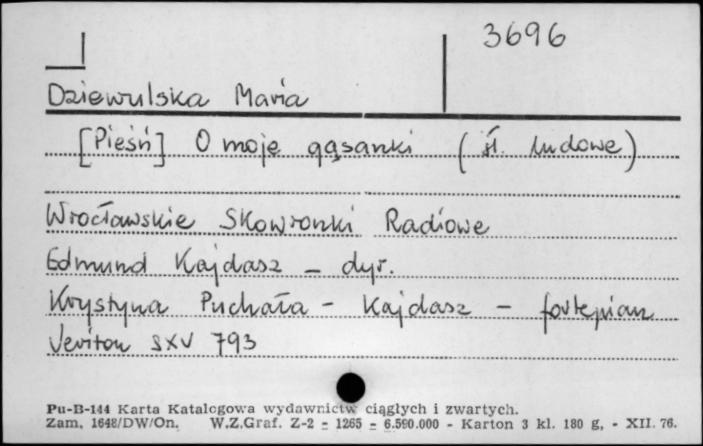 3696
Dziewulska Maria
[Pieśń] O moje gąsanki (sł. ludowe)
Wrocławskie Skowronki Radiowe
Edmund Kajdasz - dyr.
Krystyna Puchała - Kajdasz - fortepian
Veriton SXV 793
Pu-B-144 Karta Katalogowa wydawnictw ciągłych i zwartych.
Zam. 1648/DW/On. W.Z.Graf. Z-2 - 1265 - 6.590.000 - Karton 3 kl. 180 g, - XII. 76.